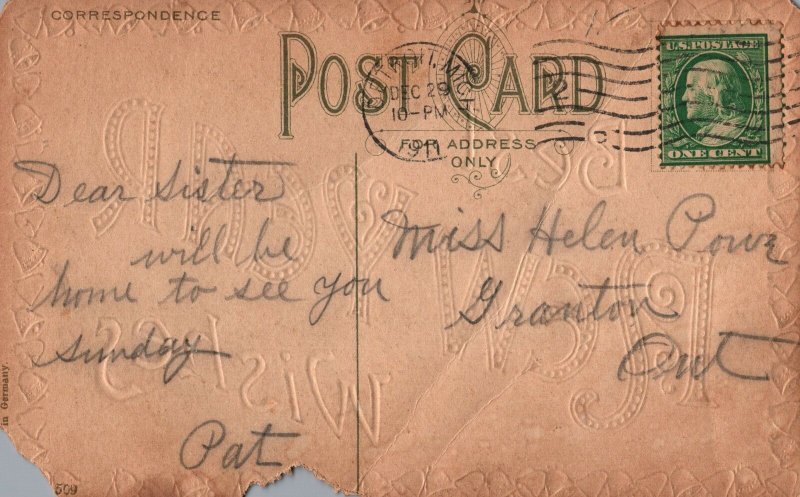 CORRESPONDENCE
POST CARD
FOR ADDRESS
ONLY
DETROIT, MICH.
DEC 29
10-PM
1911
U.S. POSTAGE
ONE CENT
Dear Sister
will be
home to see you
Sunday
Pat
Miss Helen Powe
Granton
Ont
in Germany.
509